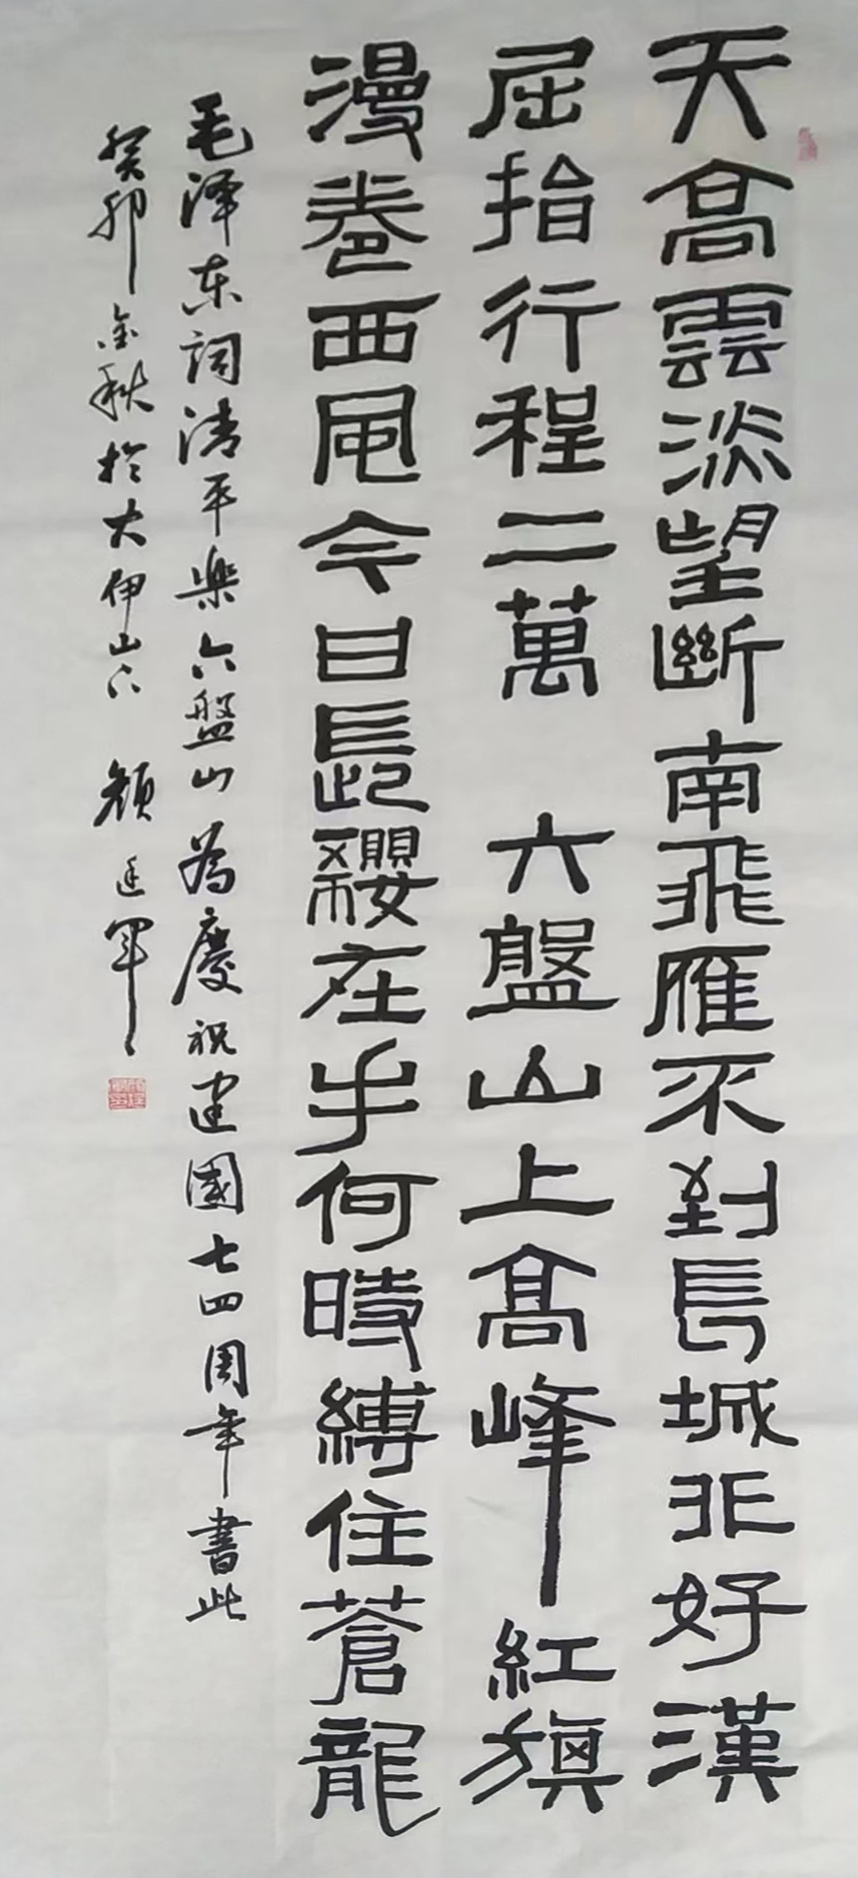 天高雲淡望斷南飛雁不到長城非好漢
屈指行程二萬 六盤山上高峰紅旗
漫卷西風今日長纓在手何時縛住蒼龍
毛泽东詞清平樂六盤山為慶祝建國七四周年書此
癸卯金秋於大伊山下 顏廷軍